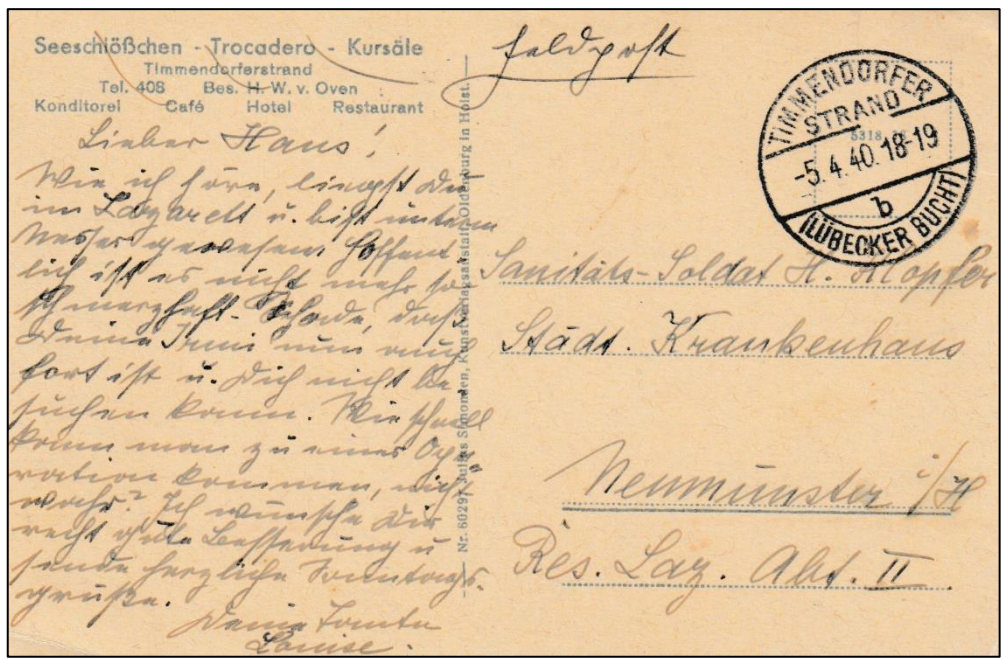 Seeschlößchen - Trocadero - Kursäle
Timmendorferstrand
Tel. 408 Bes. H. W. v. Oven
Konditorei Café Hotel Restaurant
Lieber Hans!
Wie ich höre, liegst Du
im Lazarett u. bist unterm
Messer gewesen. Hoffent
lich ist es nicht mehr so
schmerzhaft. Schade, daß
Deine Irmi nun auch
fort ist u. Dich nicht be
suchen kann. Wie schnell
kann man zu einer Ope
ration kommen, nicht
wahr? Ich wünsche Dir
recht gute Besserung u
sende herzliche Sonntags-
grüße.
Deine Tante
Louise.
Nr. 60297 Julius Simonsen, Kunstverlagsanstalt, Oldenburg in Holst.
Feldpost
TIMMENDORFER
STRAND
-5.4.40.18-19
b
(LÜBECKER BUCHT)
Sanitäts-Soldat H. Klopfer
Städt. Krankenhaus
Neumünster i/H
Res. Laz. Abt. II